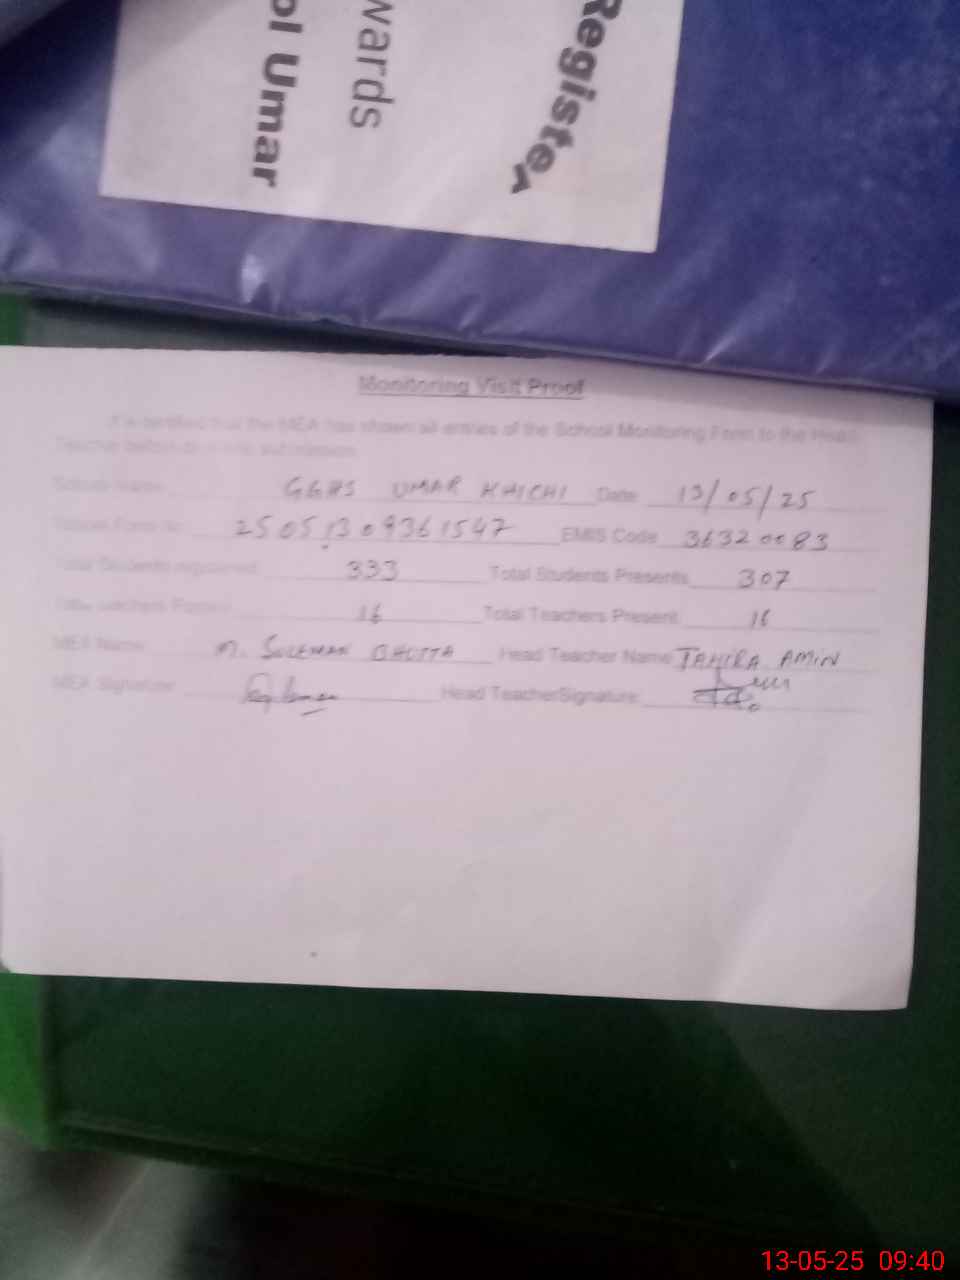 ol Umar
wards
Register
Monitoring Visit Proof
It is certified that the MEA has shown all entries of the School Monitoring Form to the Head
Teacher before
School Name GGHS UMAR KHICHI Date 13/05/25
School Form No 25051309361547 EMIS Code 36320083
Total Students registered 333 Total Students Presents 307
Total Teachers 16 Total Teachers Present 16
MEA Name M. SULEMAN BHUTTA Head Teacher Name TAHIRA AMIN
MEA Signature Head TeacherSignature
13-05-25 09:40